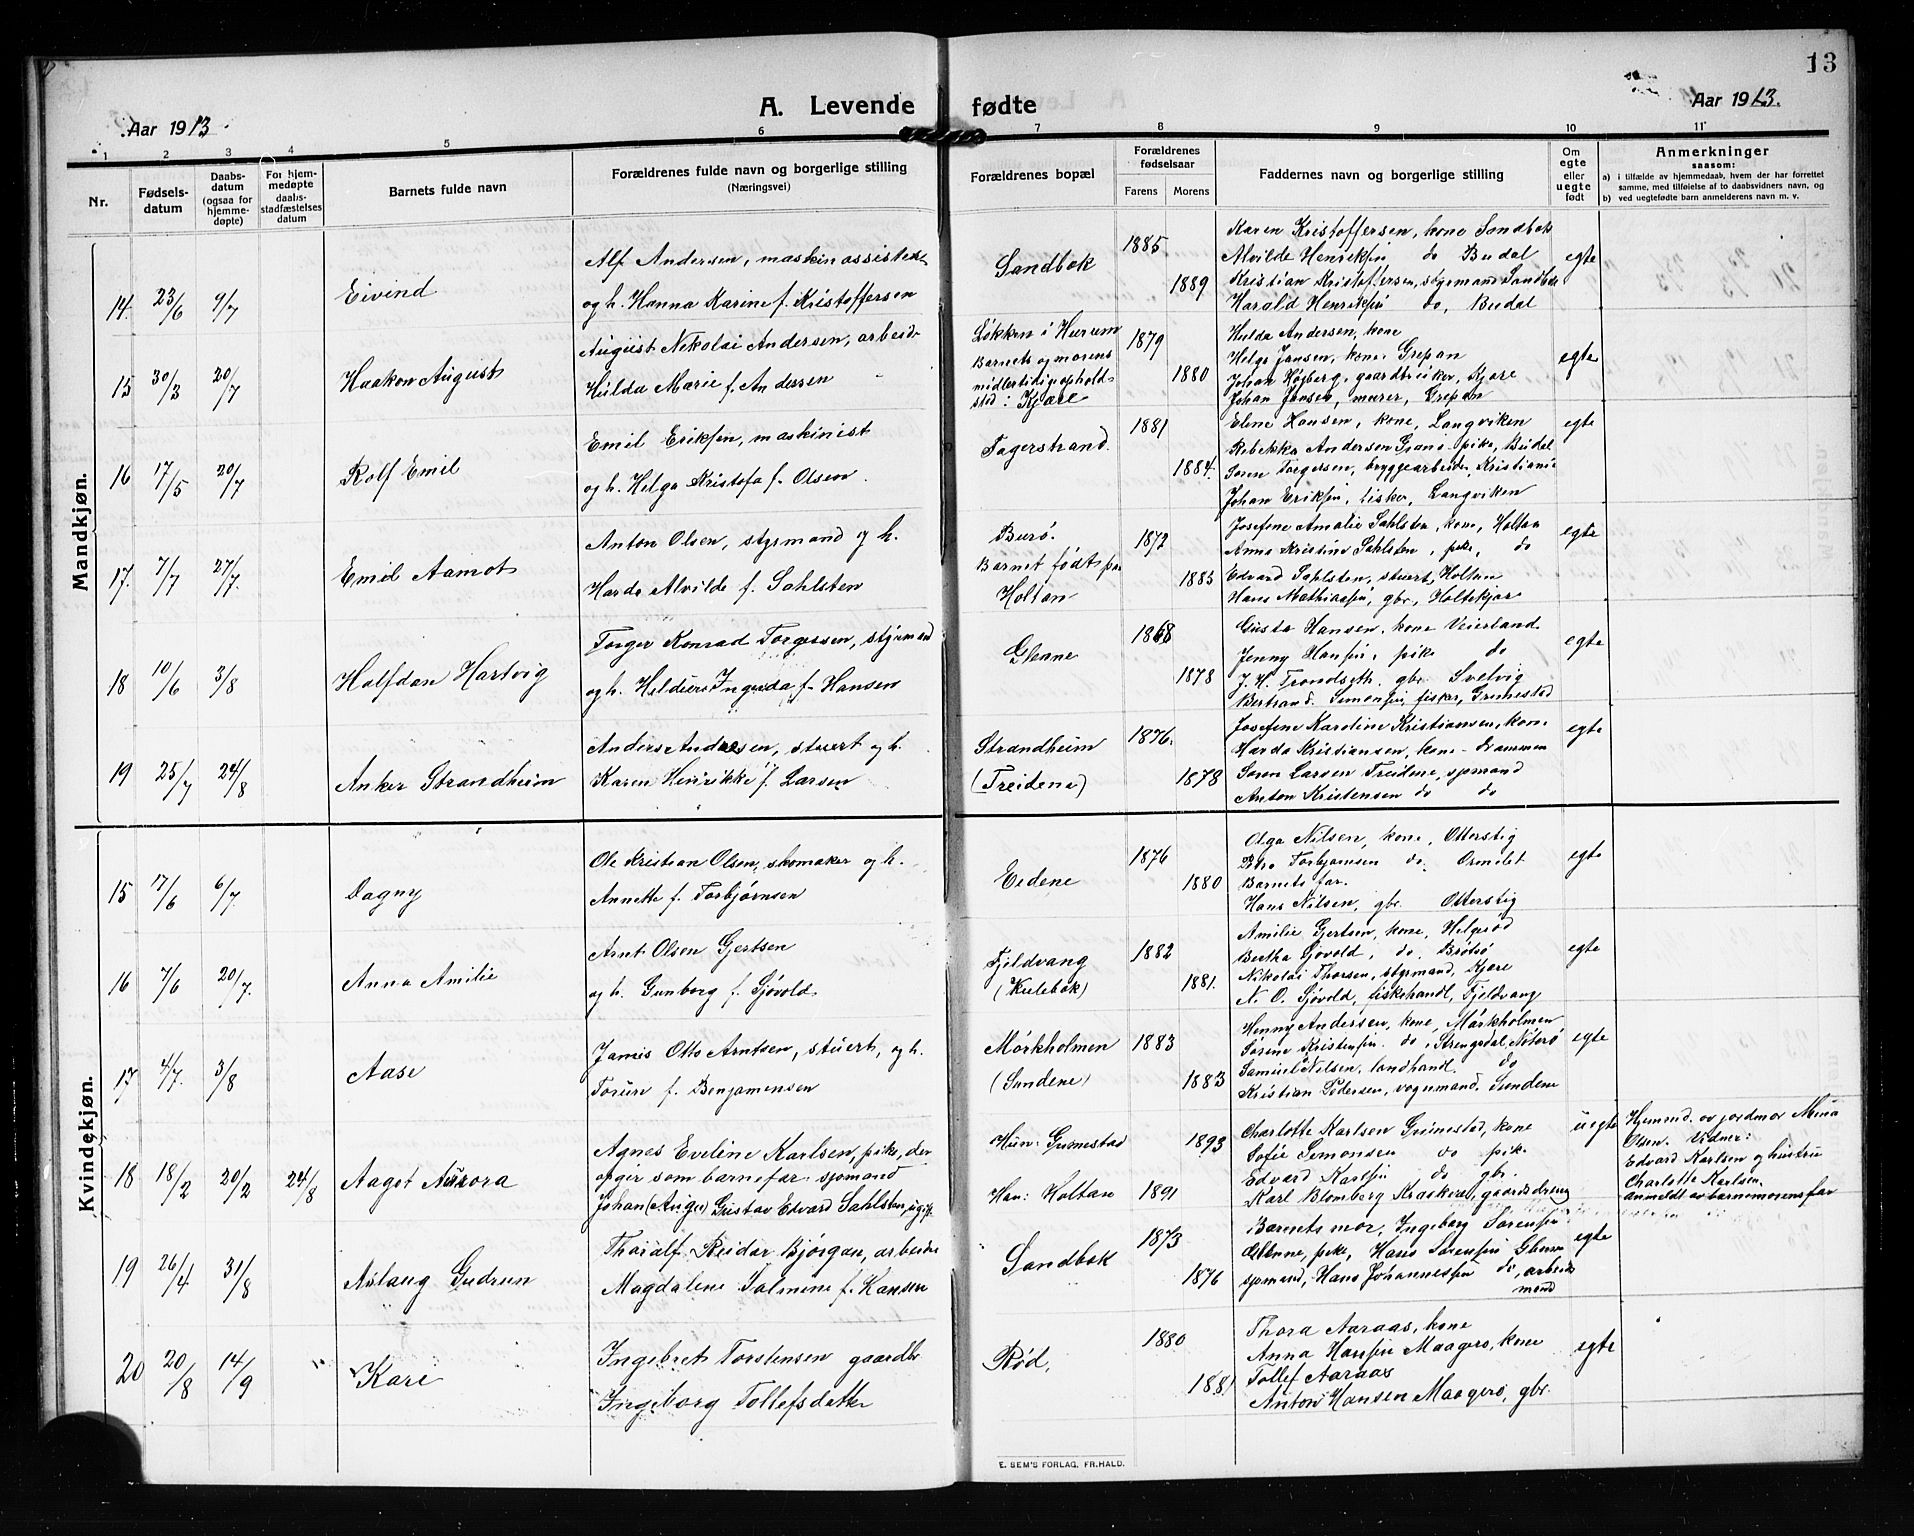 13
A. Levende fødte
Aar 1913
Aar 1913.
1 2 3 4 5 6 7 8 9 10 11
Nr.
Fødsels-
datum
Daabs-
datum
(ogsaa for
hjemme-
døpte)
For hjem-
medøpte
daabs-
stadfæstelses
datum
Barnets fulde navn
Forældrenes fulde navn og borgerlige stilling
(Næringsvei)
Forældrenes bopæl
Forældrenes
fødselsaar
Farens Morens
Faddernes navn og borgerlige stilling
Om
egte
eller
uegte
født
Anmerkninger
saasom:
a) i tilfælde av hjemmedaab, hvem der har forrettet
samme, med tilføielse af to daabsvidners navn, og
b) ved uegtefødte barn anmelderens navn m. v.
Mandkjøn.
14. 23/6 9/7
Eivind
Alf Andersen, maskinassistent
og h. Hanna Karine f. Kristoffersen
Sandbok
1885
1889
Karen Kristoffersen, kone Sandbok
Alvilde Henriksen do Budal
Kristian Kristoffersen, styrmand Sandbok
Harald Henriksen do, Budal
egte
15 30/3 20/7
Haakon August
August Nikolai Andersen, arbeider
Hulda Marie f. Andersen
Løkken i Hurum
Barnets og morens
midlertidig ophold-
sted: Kjære
1879
1880
Hulda Andersen, kone
Helga Jansen, kone Grepan
Johan Højberg, gaardbruker, Kjøre
Johan Jansen, murer, Grepan
egte
16 17/5 20/7
Rolf Emil
Emil Eriksen, maskinist
og h. Helga Kristofa f. Olsen.
Fagerstrand.
1881
1884.
Eline Hansen, kone, Langviken
Rebekka Andersen pike, Budal
Søren Torgersen, bryggearbeider, Kristiania
Johan Eriksen, fisker, Langviken
egte
17. 7/7 27/7.
Emil Aamot
Anton Olsen, styrmand og h.
Harda Alvilde f. Sahlsten
Burø.
Barnet født paa
Holtan
1872
1885
Josefine Amalie Sahlsten, kone, Holtan
Anna Kristine Sahlsten, pike, do
Edvard Sahlsten, stuert, Holtan
Hans Mathiassen, gbr, Holtekjær
egte
18 10/6 3/8
Halfdan Hartvig
Torger Konrad Torgersen, styrmand
og h. Ingevda f. Hansen
Glane
1868
1878
Gusta Hansen, kone Veierland
Jenny Hansen, pike do
J. H. gbr. Svelvig
Bertrand Simonsen, fisker, Grimestad
egte
19 25/7 24/8
Anker Strandheim
Anders Andresen, stuert og h.
Karen Henrikke f. Larsen
Strandheim
(Treidene)
1876.
1878
Josefine Karoline Kristiansen, kone
Harda Kristiansen, kone - Drammen
Søren Larsen Treidene, sjømand
Anton Kristensen do do
egte
Kvindekjøn.
15 17/6 6/7.
Dagny
Ole Kristian Olsen, skomaker og h.
Annette f. Torbjørnsen
Eidene
1876
1880
Olga Nilsen, kone, Otterstig
Torbjørnsen do. Ormelet
Barnets far.
Hans Nilsen, gbr. Otterstig
egte
16 7/6 20/7.
Anna Amilie
Arnt Olsen Gjertsen
og h. Gunborg f. Sjøvold
Fjeldvang
(Kulebok)
1882
1881.
Amilie Gjertsen, kone, Helgerød
Bertha Sjøvold, do. Brøtsø
Nikolai Thorsen, styrmand, Kjøre
N. O. Sjøvold, fiskehandl, Fjeldvang
egte
17 4/7. 3/8
Aase
Jamis Otto Arntsen, stuert, og h.
Torure f. Benjamensen
Mørkholmen
(Sundene)
1883
1883
Henny Andersen, kone, Mørkholmen
Sørene Kristensen do, Strengsdal, Nøterø
Samuel Nilsen, landhandl. do
Kristian Pedersen, vognmand, Sundene
egte
18 18/2 20/2 24/8
Aagot Aurora
Agnes Eveline Karlsen, pike, der
opgir som barnefar sjømand
Johan (August) Gustav Edvard Sahlsten, ugift
Hun: Grimestad
Han: Holtan
1893
1891
Charlotte Karlsen Grimestad, kone
Sofie Simonsen do pik.
Edvard Karlsen do gbr.
Karl Blomberg gaardsdreng
uegte
Hjemmd. av jordmor Mina
Olsen. Vidner:
Edvard Karlsen og hustru
Charlotte Karlsen.
anmeldt av barnemorens far
19 26/4 31/8
Aslaug Gudrun
Thoralf Reidar Bjørgan, arbeider
Magdalene Salmine f. Hansen
Sandbok
1873
1876
Barnets mor, Ingeborg Sørensen
pike, Hans Sørensen Glenne
sjømand, Hans Johannessen do, arbeids
mand
egte
20 20/8 14/9
Kare
Ingebret Torstensen gaardbr
Ingeborg Tollefsdatter
Rød.
1880
1881
Thora Aaraas, kone
Anna Hansen Maagerø, kone
Tollef Aaraas
Anton Hansen Maagerø, gbr.
egte
E. SEM'S FORLAG, FR.HALD.